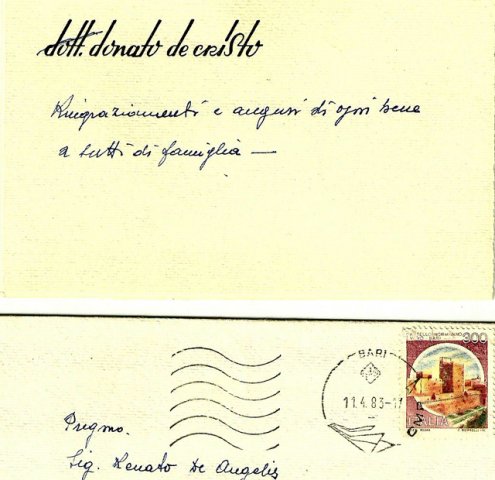 dott. donato de cristo
Ringraziamenti e auguri di ogni bene
a tutti di famiglia —
BARI
11.4.83-17
300
ITALIA
Pregmo.
Sig. Renato De Angelis